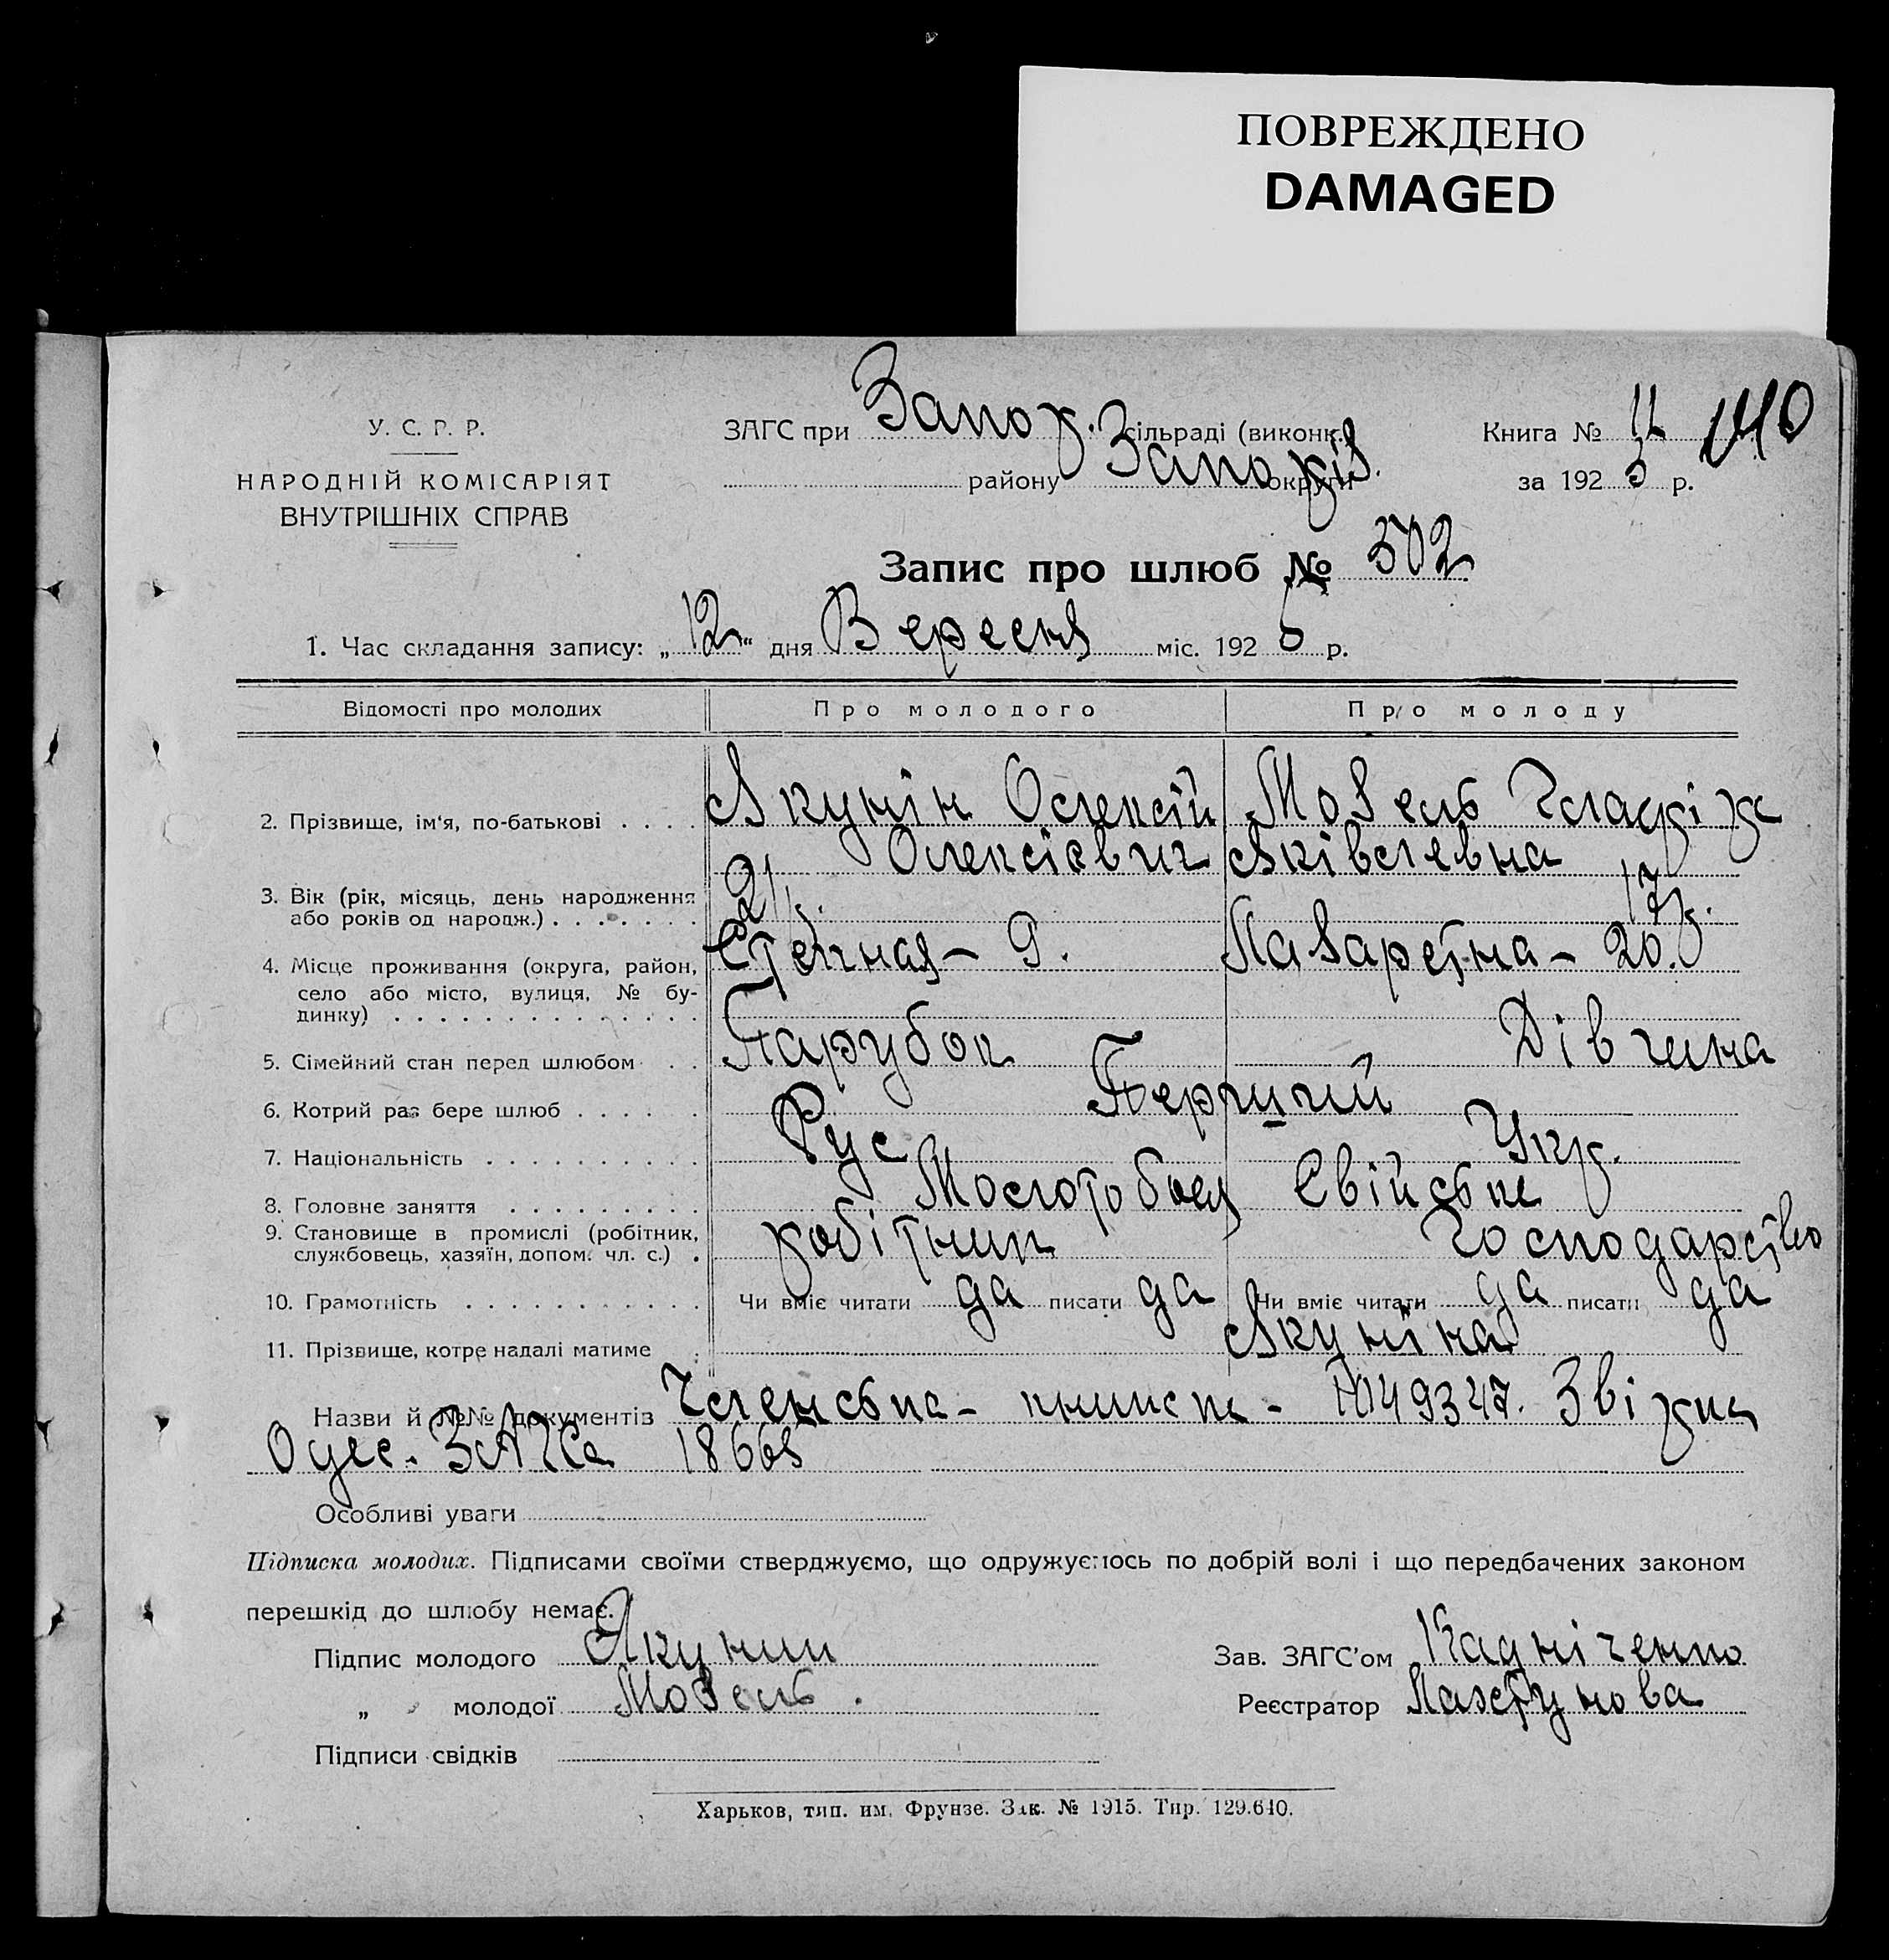 ПОВРЕЖДЕНО
DAMAGED
У. С. Р. Р.
НАРОДНІЙ КОМІСАРІЯТ
ВНУТРІШНІХ СПРАВ
ЗАГС при Запор. сільраді (виконк.)
району Запоріз. округи
Книга № 140
за 1925 р.
Запис про шлюб № 502
1. Час складання запису: „12“ дня Вересня міс. 1925 р.
Відомості про молодих Про молодого Про молоду
2. Прізвище, ім'я, по-батькові . . . . Якунін Олексій Мозель
Олексієвич Яківлевна
3. Вік (рік, місяць, день народження 21 17 р.
або років од народж.) . . . . . . .
4. Місце проживання (округа, район, Степная – 9. Лазаретна – 20.
село або місто, вулиця, № бу-
динку) . . . . . . . . . . . . . .
5. Сімейний стан перед шлюбом . . Парубок Дівчина
6. Котрий раз бере шлюб . . . . . . Перший
7. Національність . . . . . . . . . . Рус Укр.
8. Головне заняття . . . . . . . . . Молотобоец Свійське
9. Становище в промислі (робітник, робітник Господарство
службовець, хазяїн, допом. чл. с.) .
10. Грамотність . . . . . . . . . . . Чи вміє читати да писати да Чи вміє читати да писати да
11. Прізвище, котре надалі матиме . Якуніна
Назви й №№ документів Членська – книжка – 49347. Звірка
Одес. ЗАГСа
Особливі уваги
Підписка молодих. Підписами своїми стверджуємо, що одружуємось по добрій волі і що передбачених законом
перешкід до шлюбу немає.
Підпис молодого Якунин Зав. ЗАГС'ом
„ молодої Мозель. Реєстратор
Підписи свідків
Харьков, тип. им. Фрунзе. Зак. № 1915. Тир. 129.640.